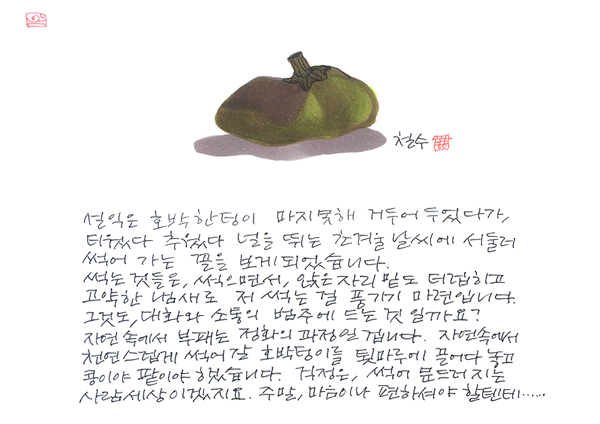 철수
설익은 호박한덩이 마지못해 거두어 두었다가,
더웠다 추웠다 널을 뛰는 초겨울 날씨에 서둘러
썩어 가는 꼴을 보게되었습니다.
썩는 것들은, 썩으면서, 앉은 자리 밑도 더럽히고
고약한 냄새로 저 썩는 걸 풍기기 마련입니다.
그것도, 대화와 소통의 범주에 드는 것 일까요?
자연 속에서 부패는 정화의 과정일 겁니다. 자연속에서
천연스럽게 썩어갈 호박덩이를 툇마루에 끌어다 놓고
콩이야 팥이야 했습니다. 걱정은, 썩어 문드러지는
사람세상이겠지요. 주말, 마음이나 편하셔야 할텐데……